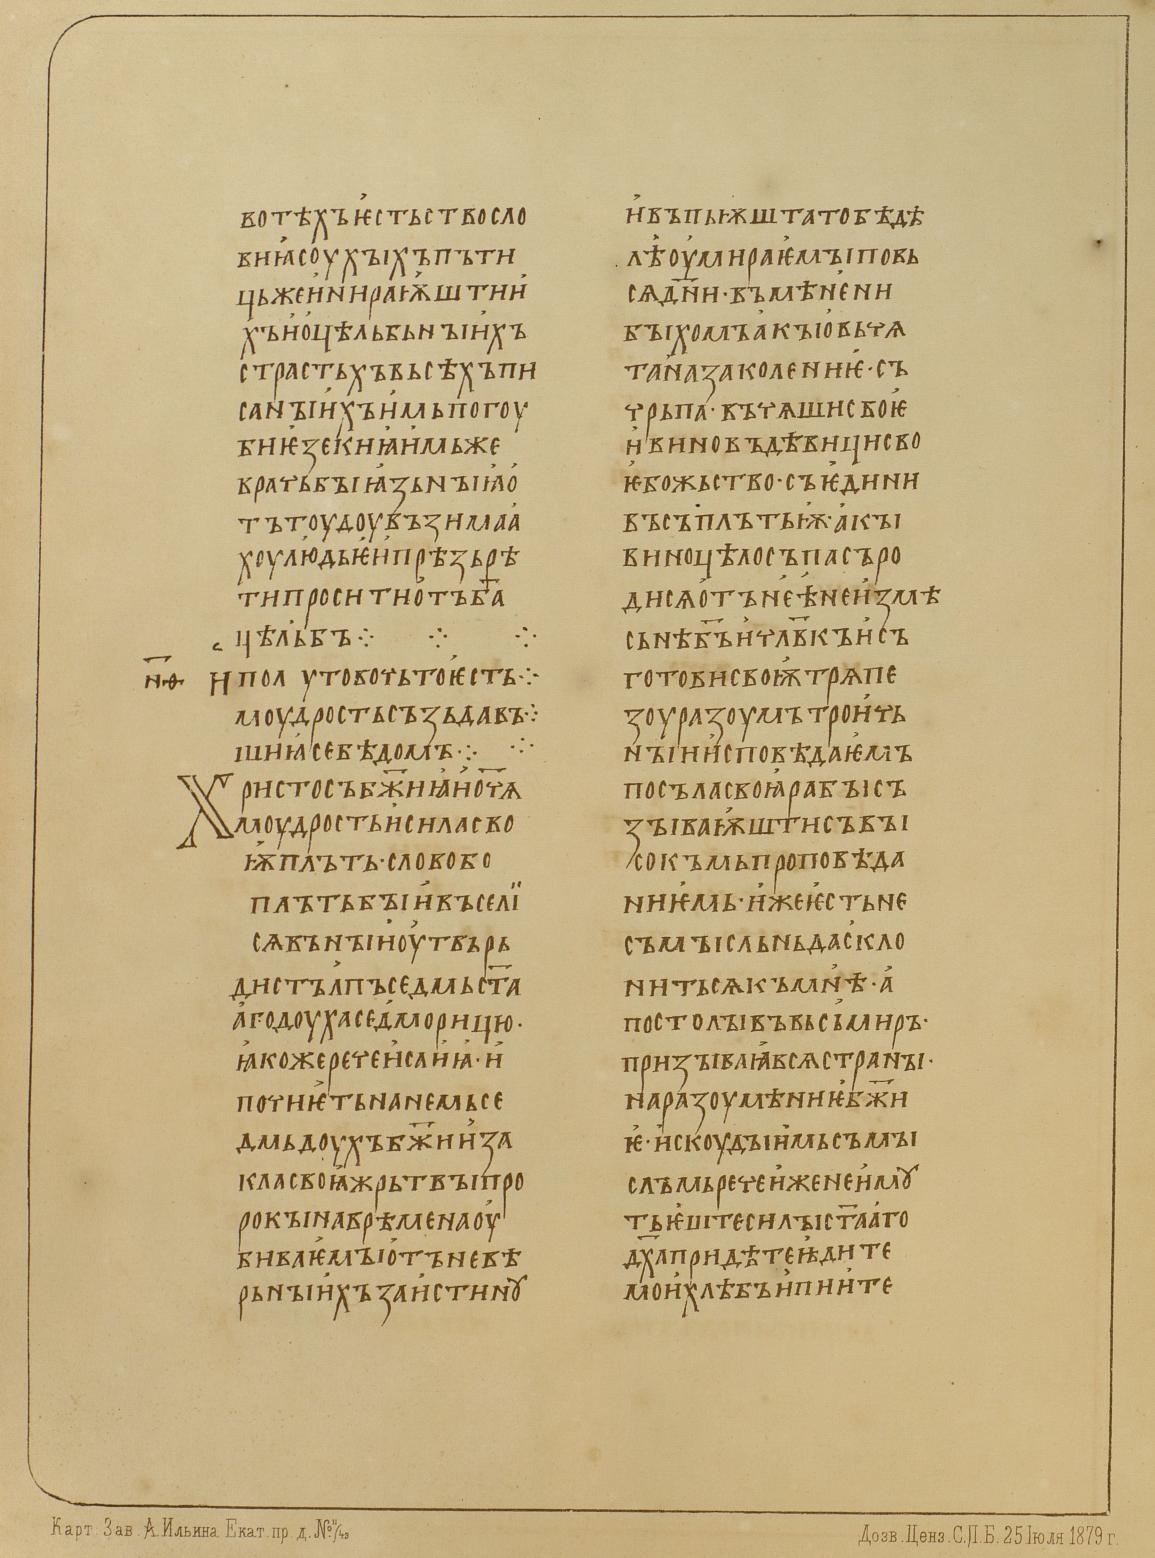 вотѣхъѥстьствосло
вниꙗсоухъıхъпъти
цьжеиниираѭштии
хъиоцѣльбьнъıихъ
страстьхъвьсѣхъпи
санъıихъимьпогоу
бниѥзекниꙗимьже
кратьбъıꙗзьнъııало
тътоудоувъзимаа
хоулюдьѥипрѣзьрѣ
типроситиотъба
цѣльбъ⁘ ⁘ ⁘
нѳ
ипол утобоѵьтоѥсть⁘
моудростьсъзьдавъ⁘
шиꙗсебѣдомъ⁘ ⁘
Христосъбжиꙗиоѵѧ
моудростьисиласво
ѭплъть·словобо
плътьбъıивъселі
сѧвънъıиоутвьрь
дистълпъседмьста
агодоухаседморицю·
ꙗкожереѵеисаиꙗ·и
поѵиѥтьнанемьсе
дмьдоухъбжииза
класвоꙗжрьтвъıпро
рокъıнаврѣменаоу
биваѥмъıотъневѣ
рьнъıихъзаистинꙋ
ивъпьѭштатобѣдѣ
лѣоумираѥмъıповь
сѧдни·въмѣнени
бъıхомъакъıовьѵѧ
таназаколениѥ·съ
ѵрьпа·въѵѧшисвоѥ
ивиновъдѣвицисво
ѥбожьство·съѥдини
въсъплътьѭ·акъı
виноцѣлосъпасъро
дисѧотънеѣнеизмѣ
сьнѣбъиѵлвкъисъ
готовисвоѭтрѧпе
зоуразоумътроиѵь
нъıиисповѣдаѥмъ
посъласвоꙗрабъıсъ
зъıваѭштисъвъı
сокъмьпроповѣда
ниѥмь·ижеѥстьне
съмъıсльньдаскло
нитьсѧкъмнѣ·а
постолъıвъвьсьмиръ·
призъıваꙗвсѧстранъı·
наразоумѣниѥбжи
ѥ·искоудъıимьсъмъı
слъмьреѵеиженеимꙋ
тьѥштесилъıстааго
дхапридѣтеꙗдите
моихлѣбъипиите
Карт. Зав. А. Ильина Екат. пр. д. № 11/43
Дозв. Ценз. С.П.Б. 25 Іюля 1879 г.